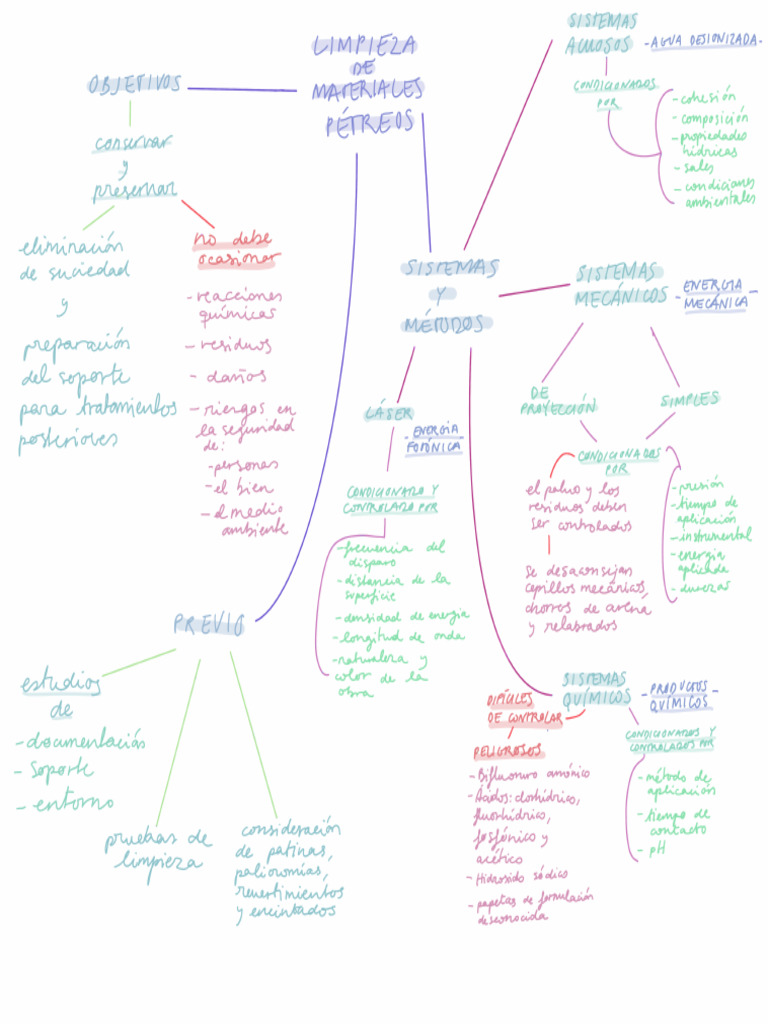 LIMPIEZA
DE
MATERIALES
PÉTREOS
OBJETIVOS
conservar
y
preservar
eliminación
de suciedad
y
preparación
del soporte
para tratamientos
posteriores
no debe
ocasionar
- reacciones
químicas
- residuos
- daños
- riesgos en
la seguridad
de:
- personas
- el bien
- el medio
ambiente
PREVIO
estudios
de
- documentación
- soporte
- entorno
pruebas de
limpieza
consideración
de patinas,
policromías,
revestimientos
y encintados
SISTEMAS
Y
MÉTODOS
SISTEMAS
ACUOSOS
- AGUA DESIONIZADA -
CONDICIONADOS
POR
- cohesión
- composición
- propiedades
hídricas
- sales
- condiciones
ambientales
SISTEMAS
MECÁNICOS
- ENERGIA -
MECÁNICA
DE
PROYECCIÓN
SIMPLES
CONDICIONADOS
POR
el polvo y los
residuos deben
ser controlados
Se desaconsejan
cepillos mecánicos,
chorros de arena
y relabrados
- presión
- tiempo de
aplicación
- instrumental
- energía
aplicada
- durezas
LÁSER
- ENERGIA -
FOTÓNICA
CONDICIONADO Y
CONTROLADO POR
- frecuencia del
disparo
- distancia de la
superficie
- densidad de energia
- longitud de onda
- naturaleza y
color de la
obra
SISTEMAS
QUÍMICOS
- PRODUCTOS -
QUÍMICOS
DIFÍCILES
DE CONTROLAR
PELIGROSOS
- Bifluoruro amónico
- Ácidos: clorhídrico,
fluorhídrico,
fosfónico y
acético
- Hidroxido sódico
- papetas de formulación
desconocida
CONDICIONADOS Y
CONTROLADOS POR
- método de
aplicación
- tiempo de
contacto
- pH